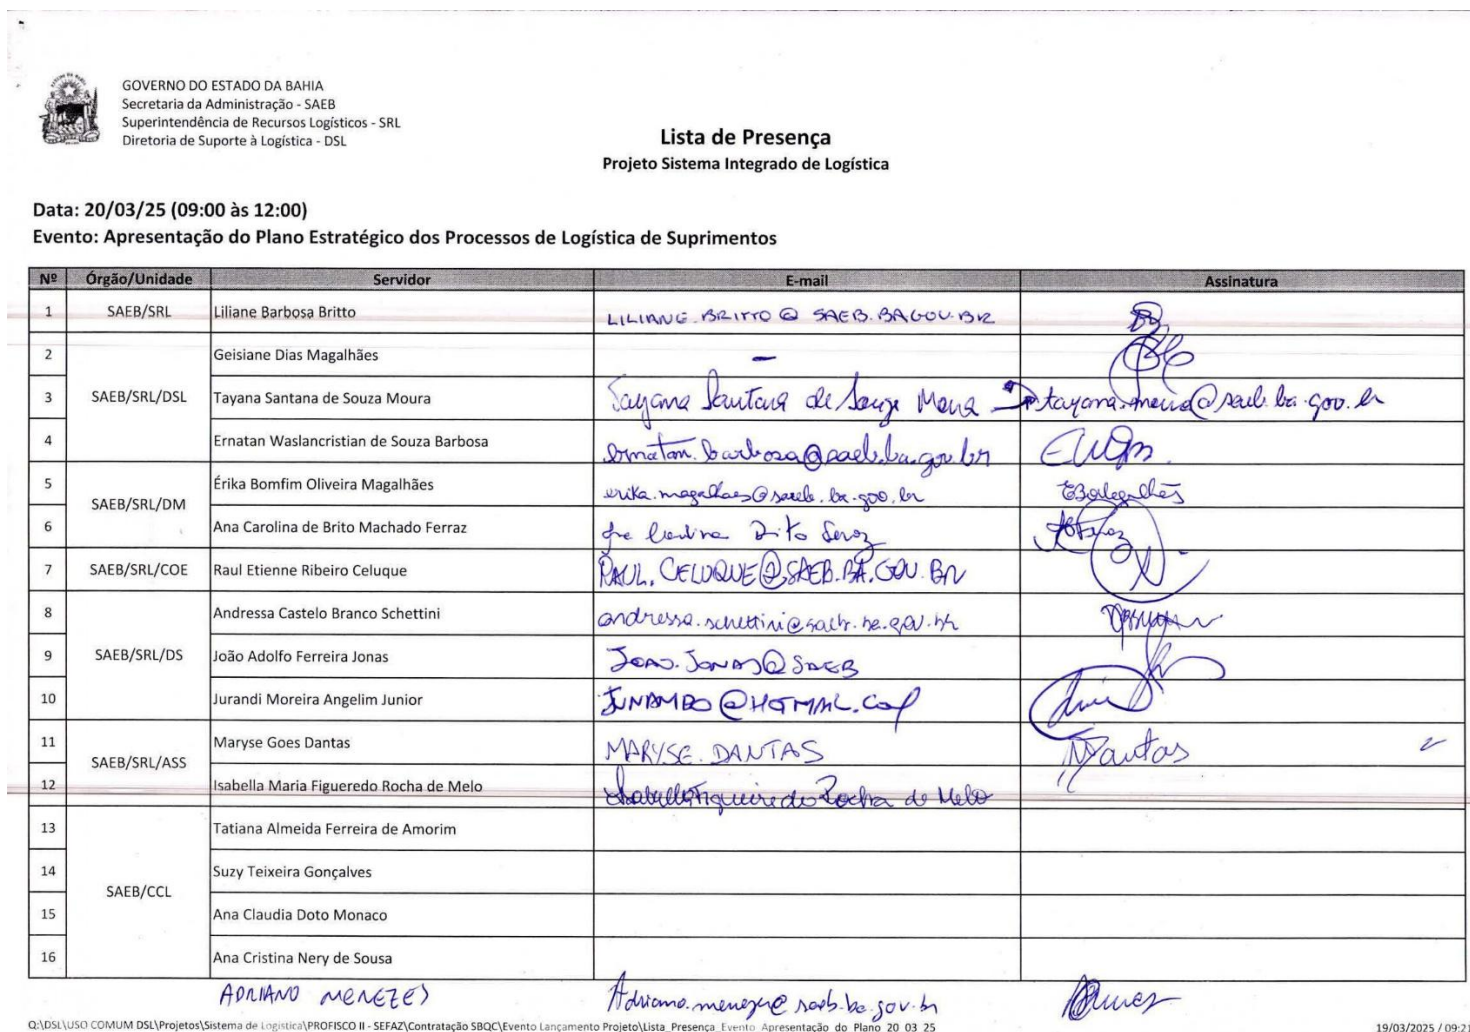 GOVERNO DO ESTADO DA BAHIA
Secretaria da Administração - SAEB
Superintendência de Recursos Logísticos - SRL
Diretoria de Suporte à Logística - DSL
Lista de Presença
Projeto Sistema Integrado de Logística
Data: 20/03/25 (09:00 às 12:00)
Evento: Apresentação do Plano Estratégico dos Processos de Logística de Suprimentos
Nº Órgão/Unidade Servidor E-mail Assinatura
1 SAEB/SRL Liliane Barbosa Britto LILIANE.BRITTO@SAEB.BA.GOV.BR
2 Geisiane Dias Magalhães –
3 SAEB/SRL/DSL Tayana Santana de Souza Moura Tayana Santana de Souza Moura tayana.moura@saeb.ba.gov.br
4 Ernatan Waslancristian de Souza Barbosa ernatan.barbosa@saeb.ba.gov.br
5 SAEB/SRL/DM Érika Bomfim Oliveira Magalhães erika.magalhaes@saeb.ba.gov.br EMagalhães
6 Ana Carolina de Brito Machado Ferraz Ana Carolina Brito Ferraz
7 SAEB/SRL/COE Raul Etienne Ribeiro Celuque RAUL.CELUQUE@SAEB.BA.GOV.BR
8 Andressa Castelo Branco Schettini andressa.schettini@saeb.ba.gov.br
9 SAEB/SRL/DS João Adolfo Ferreira Jonas JOAO.JONAS@SAEB
10 Jurandi Moreira Angelim Junior @HOTMAIL.COM
11 SAEB/SRL/ASS Maryse Goes Dantas MARYSE.DANTAS MDantas
12 Isabella Maria Figueredo Rocha de Melo Isabella Figueiredo Rocha de Melo
13 Tatiana Almeida Ferreira de Amorim
14 SAEB/CCL Suzy Teixeira Gonçalves
15 Ana Claudia Doto Monaco
16 Ana Cristina Nery de Sousa
ADRIANO MENEZES Adriano.menezes@saeb.ba.gov.br
Q:\DSL\USO COMUM DSL\Projetos\Sistema de Logística\PROFISCO II - SEFAZ\Contratação SBQC\Evento Lançamento Projeto\Lista_Presença_Evento_Apresentação_do_Plano_20_03_25 19/03/2025 / 09:2